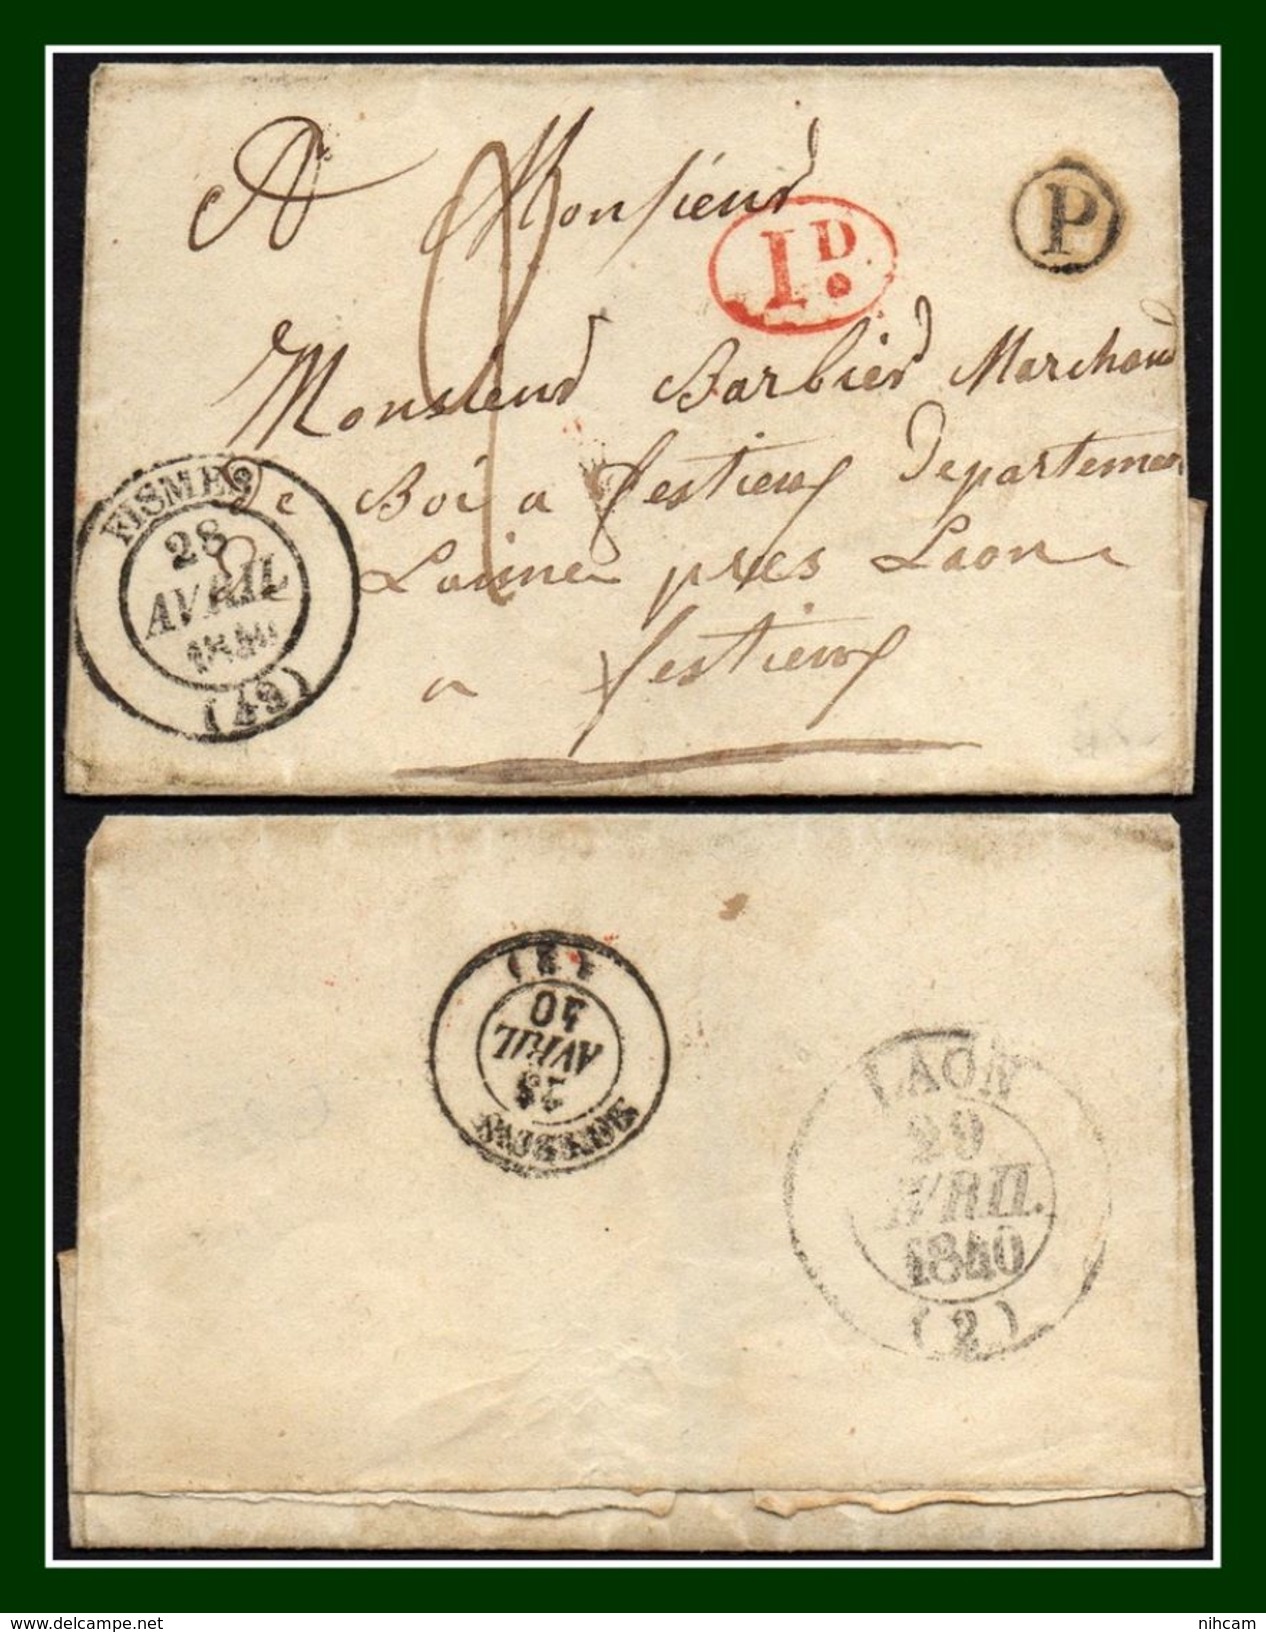 A Monsieur
1 D.
P
Monsieur Barbier Marchand
de Boi a festieux Departemen
Laine pres Laon
a festieux
FISMES
28
AVRIL
1840
(49)
(2)
40
AVRIL
28
SOISSONS
LAON
29
AVRIL.
1840
(2)
delcampe.net
nihcam